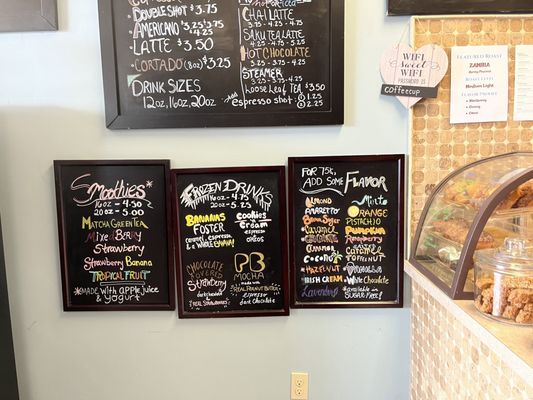 DOUBLE SHOT 3.25 3.75
AMERICANO
LATTE $3.50
CORTADO (8oz) $3.25
DRINK SIZES
12oz, 16oz, 20oz
CHAI LATTE
3.75 - 4.25 - 4.75
SAKUTEA LATTE
4.25 - 4.75 - 5.25
HOT CHOCOLATE
STEAMER
Loose Leaf Tea $3.50
add
espresso shot
$1.25
WIFI
Sweet
WIFI
PASSWORD IS
coffeecup
Featured Roast
ZAMBIA
Medium Light
Smoothies
16oz - 4.50
20oz - 5.00
MATCHA GREEN TEA
Mixed BERRY
Strawberry
Strawberry BANANA
TROPICAL FRUIT
*MADE WITH APPLE JUICE
& yogurt
FROZEN DRINKS
16oz - 4.75
20oz - 5.25
BANANAS
FOSTER
caramel, espresso
& a whole BANANA
cookies
'N' CREAM
espresso
oreos
CHOCOLATE
COVERED
Strawberry
espresso
dark chocolate
REAL STRAWBERRIES
PB
MOCHA
MADE WITH
REAL PEANUT BUTTER
espresso
dark chocolate
FOR 75¢
ADD SOME FLAVOR
ALMOND
AMARETTO
Brown Sugar
CARAMEL
Cinnamon
COCONUT
HAZELNUT
IRISH CREAM
LAVENDER
Mint
ORANGE
PISTACHIO
Pumpkin
Raspberry
TOFFEE NUT
VANILLA
White Chocolate
*available in
SUGAR FREE